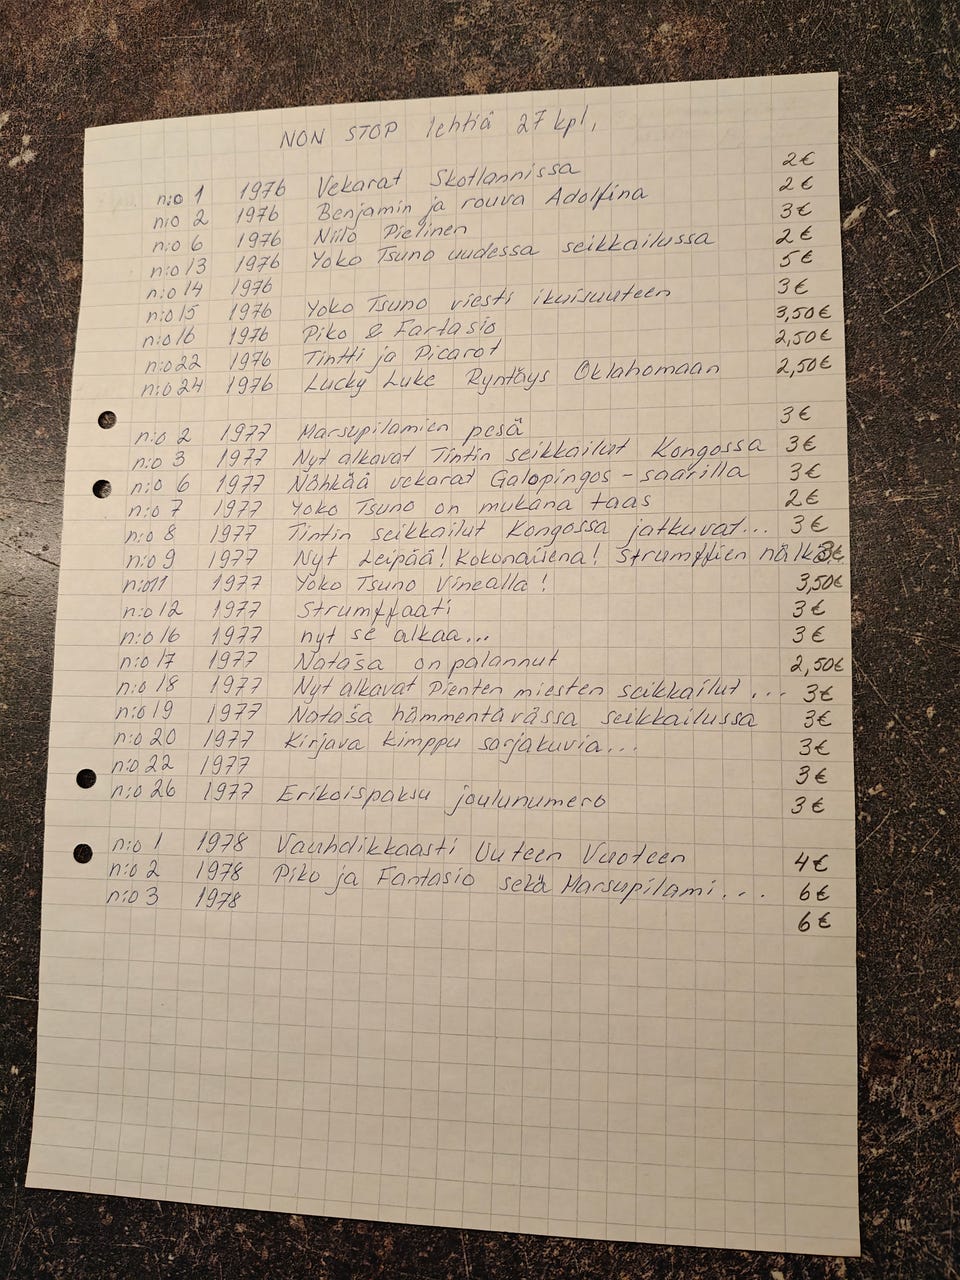 NON STOP lehtiä 27 kpl,
n:o 1 1976 Vekarat Skotlannissa 2€
n:o 2 1976 Benjamin ja rouva Adolfina 2€
n:o 6 1976 Niilo Pielinen 3€
n:o 13 1976 Yoko Tsuno uudessa seikkailussa 2€
n:o 14 1976 5€
n:o 15 1976 Yoko Tsuno viesti ikuisuuteen 3€
n:o 16 1976 Piko & Fartasio 3,50€
n:o 22 1976 Tintti ja Picarot 2,50€
n:o 24 1976 Lucky Luke Ryntäys Oklahomaan 2,50€
n:o 2 1977 Marsupilamien pesä 3€
n:o 3 1977 Nyt alkavat Tintin seikkailut Kongossa 3€
n:o 6 1977 Nähkää vekarat Galopingos-saarilla 3€
n:o 7 1977 Yoko Tsuno on mukana taas 2€
n:o 8 1977 Tintin seikkailut Kongossa jatkuvat... 3€
n:o 9 1977 Nyt Leipää! Kokonaisena! Strumffien 3€
n:o 11 1977 Yoko Tsuno Vinealla! 3,50€
n:o 12 1977 Strumffaati 3€
n:o 16 1977 nyt se alkaa... 3€
n:o 17 1977 Nataša on palannut 2,50€
n:o 18 1977 Nyt alkavat Pienten miesten seikkailut... 3€
n:o 19 1977 Nataša hämmentävässä seikkailussa 3€
n:o 20 1977 Kirjava kimppu sarjakuvia... 3€
n:o 22 1977 3€
n:o 26 1977 Erikoispaksu joulunumero 3€
n:o 1 1978 Vauhdikkaasti Uuteen Vuoteen 4€
n:o 2 1978 Piko ja Fantasio sekä Marsupilami... 6€
n:o 3 1978 6€